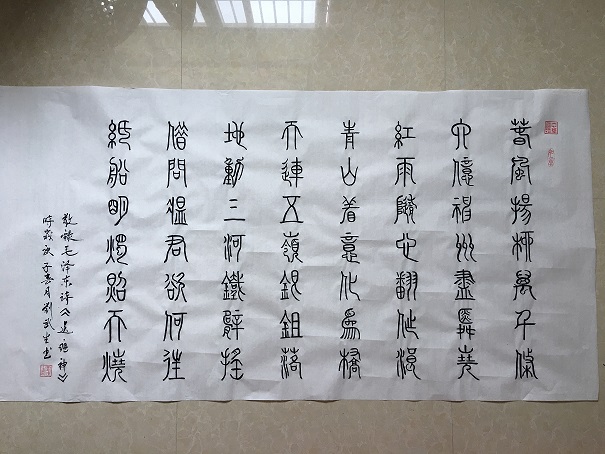 春風揚柳萬千條
六億神州盡舜堯
紅雨隨心翻作浪
青山着意化為橋
天連五嶺銀鉏落
地動三河鐵臂搖
借問瘟君欲何往
紙船明燭照天燒
敬錄毛泽东詩《送瘟神》
時秋月劉武生書